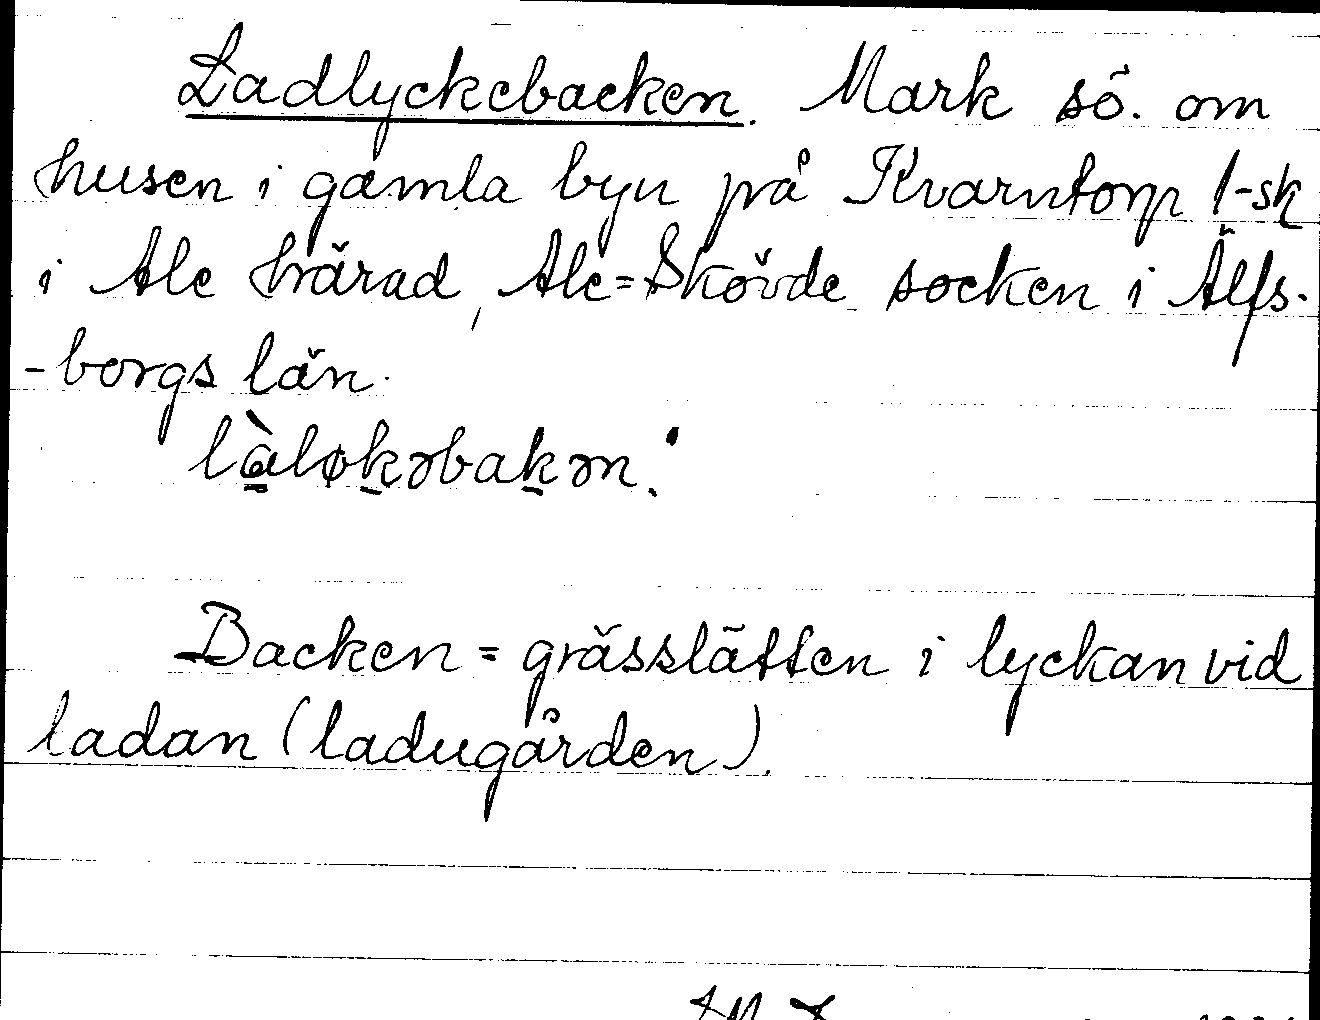 Ladlyckebacken. Mark sö. om
husen i gamla byn på Kvarntorp 1-sk
i Ale härad, Ale=Skövde socken i Älfs-
-borgs län.
là̱løḵəbaḵən.
Backen = grässlätten i lyckan vid
ladan (ladugården).